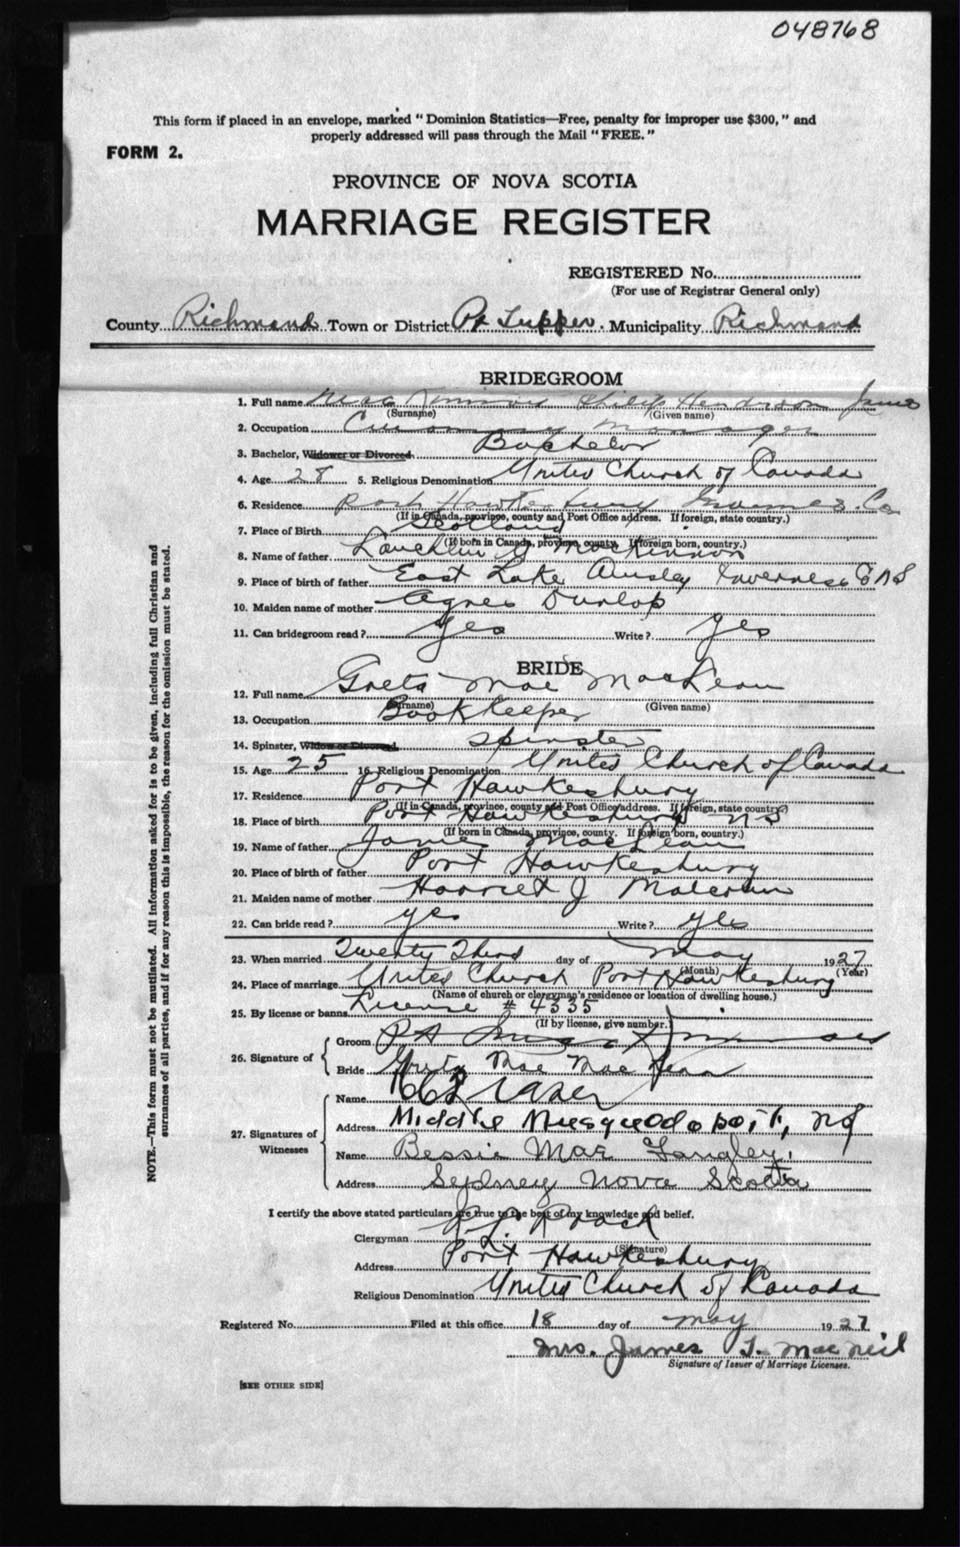 048768
This form if placed in an envelope, marked "Dominion Statistics—Free, penalty for improper use $300," and
properly addressed will pass through the Mail "FREE."
FORM 2.
PROVINCE OF NOVA SCOTIA
MARRIAGE REGISTER
REGISTERED No.
(For use of Registrar General only)
County Richmond Town or District Pt Tupper. Municipality Richmond
BRIDEGROOM
1. Full name Mac Kinnon Philip Henderson James
(Surname) (Given name)
2. Occupation Creamery Manager
3. Bachelor, Widower or Divorced Bachelor
4. Age 28 5. Religious Denomination United Church of Canada
6. Residence Port Hawkesbury Inverness Co
(If in Canada, province, county and Post Office address. If foreign, state country.)
7. Place of Birth Scotland
(If born in Canada, province, county. If foreign born, country.)
8. Name of father Lauchlin G MacKinnon
9. Place of birth of father East Lake Ainsley Inverness Co N S
10. Maiden name of mother Agnes Dunlop
11. Can bridegroom read? Yes Write? Yes
BRIDE
12. Full name Greta Mae MacLean
(Surname) (Given name)
13. Occupation Bookkeeper
14. Spinster, Widow or Divorced Spinster
15. Age 25 16. Religious Denomination United Church of Canada
17. Residence Port Hawkesbury
(If in Canada, province, county and Post Office address. If foreign, state country.)
18. Place of birth Port Hawkesbury N S
(If born in Canada, province, county. If foreign born, country.)
19. Name of father James MacLean
20. Place of birth of father Port Hawkesbury
21. Maiden name of mother Harriet J Malcolm
22. Can bride read? yes Write? yes
23. When married Twenty Third day of May 1927
(Month) (Year)
24. Place of marriage United Church Port Hawkesbury
(Name of church or clergyman's residence or location of dwelling house.)
25. By license or banns License # 4335
(If by license, give number.)
26. Signature of Groom
Bride Greta Mae MacLean
27. Signatures of Witnesses
Name
Address Middle Musquodoboit, NS
Name Bessie Mae Langley.
Address Sydney Nova Scotia
I certify the above stated particulars are true to the best of my knowledge and belief.
Clergyman
(Signature)
Address Port Hawkesbury
Religious Denomination United Church of Canada
Registered No. Filed at this office 18 day of May 1927
Mrs. James T. MacNeil
Signature of Issuer of Marriage Licenses.
[SEE OTHER SIDE]
NOTE.—This form must not be mutilated. All information asked for is to be given, including full Christian and
surnames of all parties, and if for any reason this is impossible, the reason for the omission must be stated.